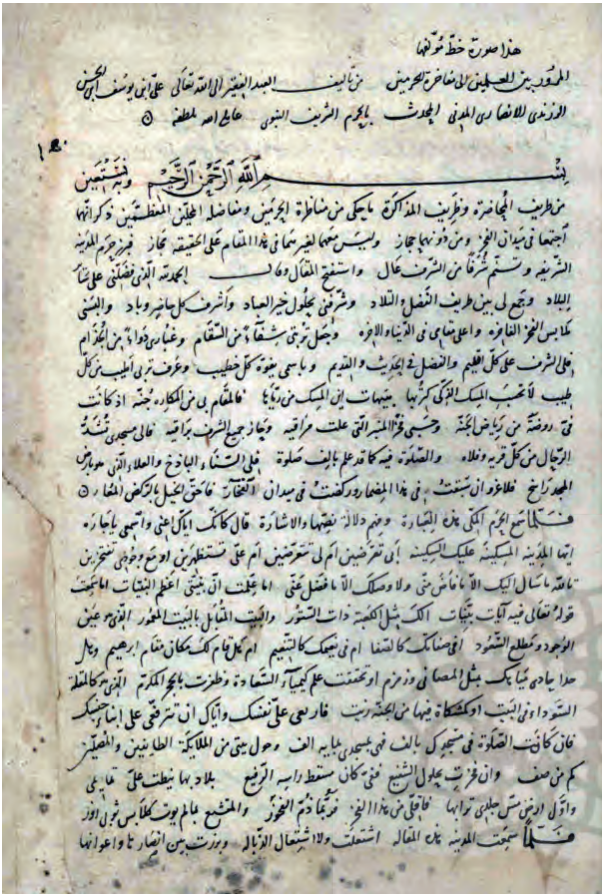 هذا صورة خط مؤلفها
المرور بين العلمين الى مفاخرة الحرمين من تأليف العبد الفقير الى الله تعالى على ابن يوسف ابن الحسن
الزرندى الانصارى المدنى المحدث بالحرم الشريف النبوى عامله الله بلطفه
بسم الله الرحمن الرحيم وبه نستعين
من طريف المحاضرة وظريف المذاكرة ما يحكى من مناظرة الحرمين ومفاضلة المحلين المعظمين ذكر انهما
اجتمعا فى ميدان الفخر ومن دونهما حجاز وليس معهما لغيرهما فى هذا المقام على الحقيقة مجاز فبرز حرم المدينة
الشريفة وتسنم شرفا من الشرف عال واستفتح المقال وقال الحمد لله الذى فضلنى على سائر
البلاد وجمع لى بين طريف الفضل والتلاد وشرفنى بحلول خير العباد واشرف كل حاضر وباد والبسنى
ملابس الفخر الفاخرة واعلى مقامى فى الدنيا والاخرة وجعل تربتى شفاء من السقام وغبارى دواء من الجذام
فلى الشرف على كل اقليم والفضل فى الحديث والقديم وباسمى يفوه كل خطيب وعرف تربى اطيب من كل
طيب لا تحسب المسك الذكى كتربها هيهات اين المسك من رياها فالمقام بى من المكاره جنة اذ كانت
فى روضة من رياض الجنة وحسبى فخرا المنبر الذى علت مراقيه وحاز جميع الشرف براقيه فالى مسجدى تشد
الرحال من كل قرية وفلاة والصلوة فيه كما قد علم بالف صلوة فلى السناء الباذخ والعلاء الذى هو بارض
المجد راسخ فلا غرو ان سبقت فى هذا المضمار وركضت فى ميدان الافتخار فاحق الخيل بالركض المعار
فلما سمع الحرم المكى هذه العبارة وفهم دلالة نصها والاشارة قال كانك اياى اعنى واسمعى ياجاره
ايتها المدينة المسكينة عليك السكينة أبى تعرضين ام لى تتعرضين ام على تستظهرين او مع وجودى تفتخرين
تالله ما سال اليك الا ما فاض منى ولا وصلك الا ما فضل عنى اما علمت ان بيتى اعظم البنيات اما سمعت
قوله تعالى فيه آيات بينات الك مثل الكعبة ذات الستور والبيت المقابل بالبيت المعمور الذى هو عين
الوجود ومطلع السعود افى صفائك كالصفا ام فى نعيمك كالتنعيم ام هل قام لك مكان مقام ابرهيم وهل
حدا بحادى مياهك مثل المصافى وزمزم او تحققت علم كيمياء السعادة وظفرت بالحجر المكرم الذى هو كالمقلة
السوداء فى البيت او كمشكاة فيها من الجنة زيت فاربعى على نفسك واياك ان تترفعى على ابناء جنسك
فان كانت الصلوة فى مسجدك بالف فهى بمسجدى بمائة الف وحول بيتى من الملايكة الطائفين والمصلين
كم من صف وان فخرت بحلول الشفيع ففى كان مسقط راسه الرفيع بلاد بها نيطت على تمايمى
واول ارض مس جلدى ترابها فاقلى من هذا الفخر فربما ذم الفخور والمتشبع بما لم يؤت كلابس ثوبى زور
فلما سمعت المدينة هذه المقالة اشتعلت ولا اشتعال الذبالة وبرزت بين انصارها واعوانها